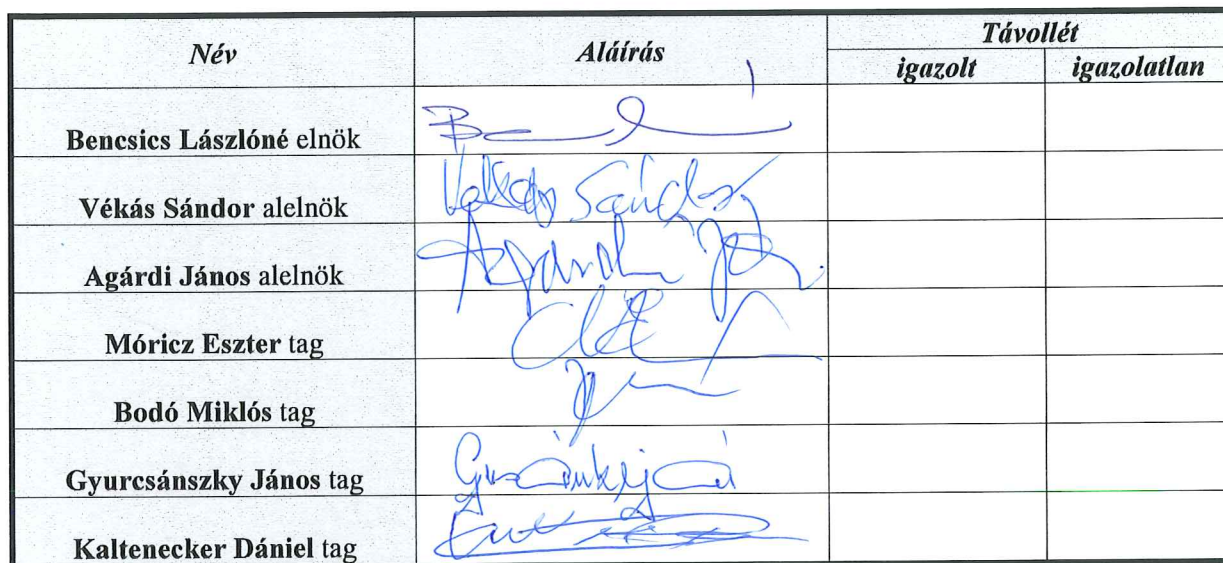 Név Aláírás Távollét
igazolt igazolatlan
Bencsics Lászlóné elnök
Vékás Sándor alelnök Sándor
Agárdi János alelnök
Móricz Eszter tag
Bodó Miklós tag
Gyurcsánszky János tag
Kaltenecker Dániel tag